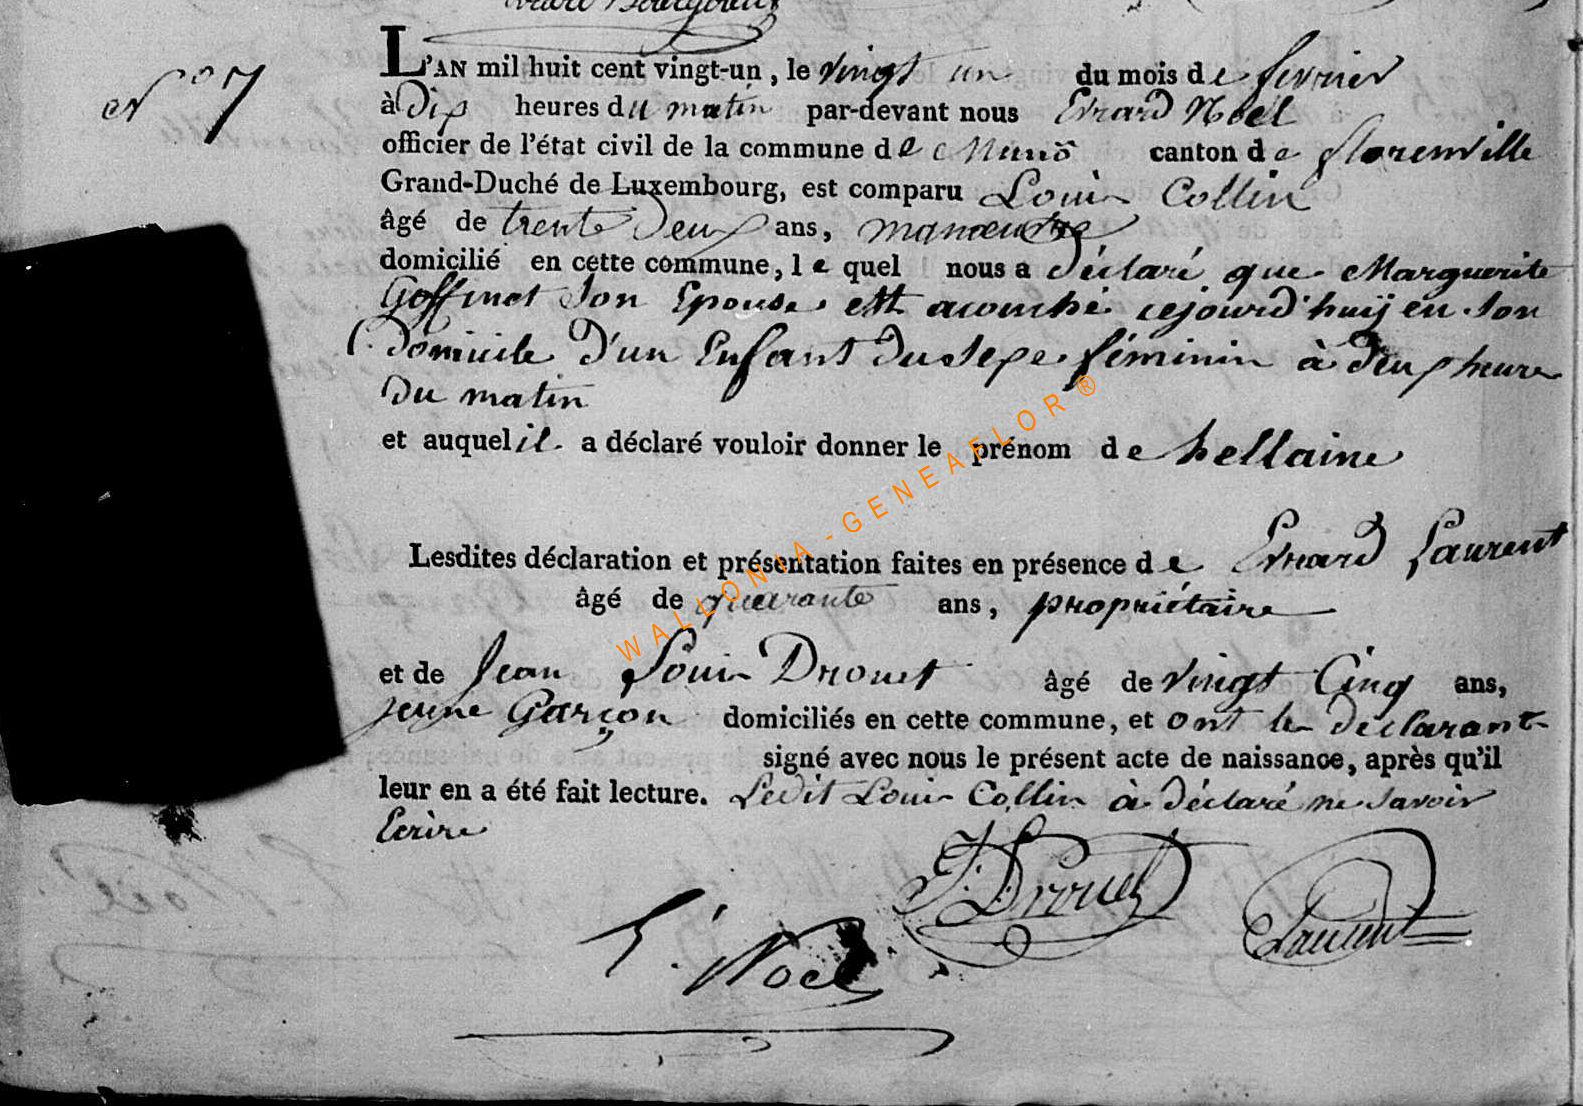 N° 7
L'AN mil huit cent vingt-un, le vingt un du mois de fevrier
à Dix heures du matin par-devant nous Evrard Noël
officier de l'état civil de la commune de Muno canton de florenville
Grand-Duché de Luxembourg, est comparu Louis Collin
âgé de trente Deux ans, manoeuvre
domicilié en cette commune, lequel nous a déclaré que Marguerite
Goffinet Son Epouse est acouché cejourd'huij en Son
Domicile D'un Enfant Du Sexe féminin à deux heure
Du matin
et auquel il a déclaré vouloir donner le prénom de hellaine
Lesdites déclaration et présentation faites en présence de Evrard Laurent
âgé de quarante ans, propriétaire
et de Jean Louis Drouet âgé de vingt Cinq ans,
jeune Garçon domiciliés en cette commune, et ont le déclarant
signé avec nous le présent acte de naissance, après qu'il
leur en a été fait lecture. Ledit Louis Collin à déclaré ne Savoir
Ecrire
JL Drouet
Laurent
E. Noël
WALLONIA-GENEAFLOR®